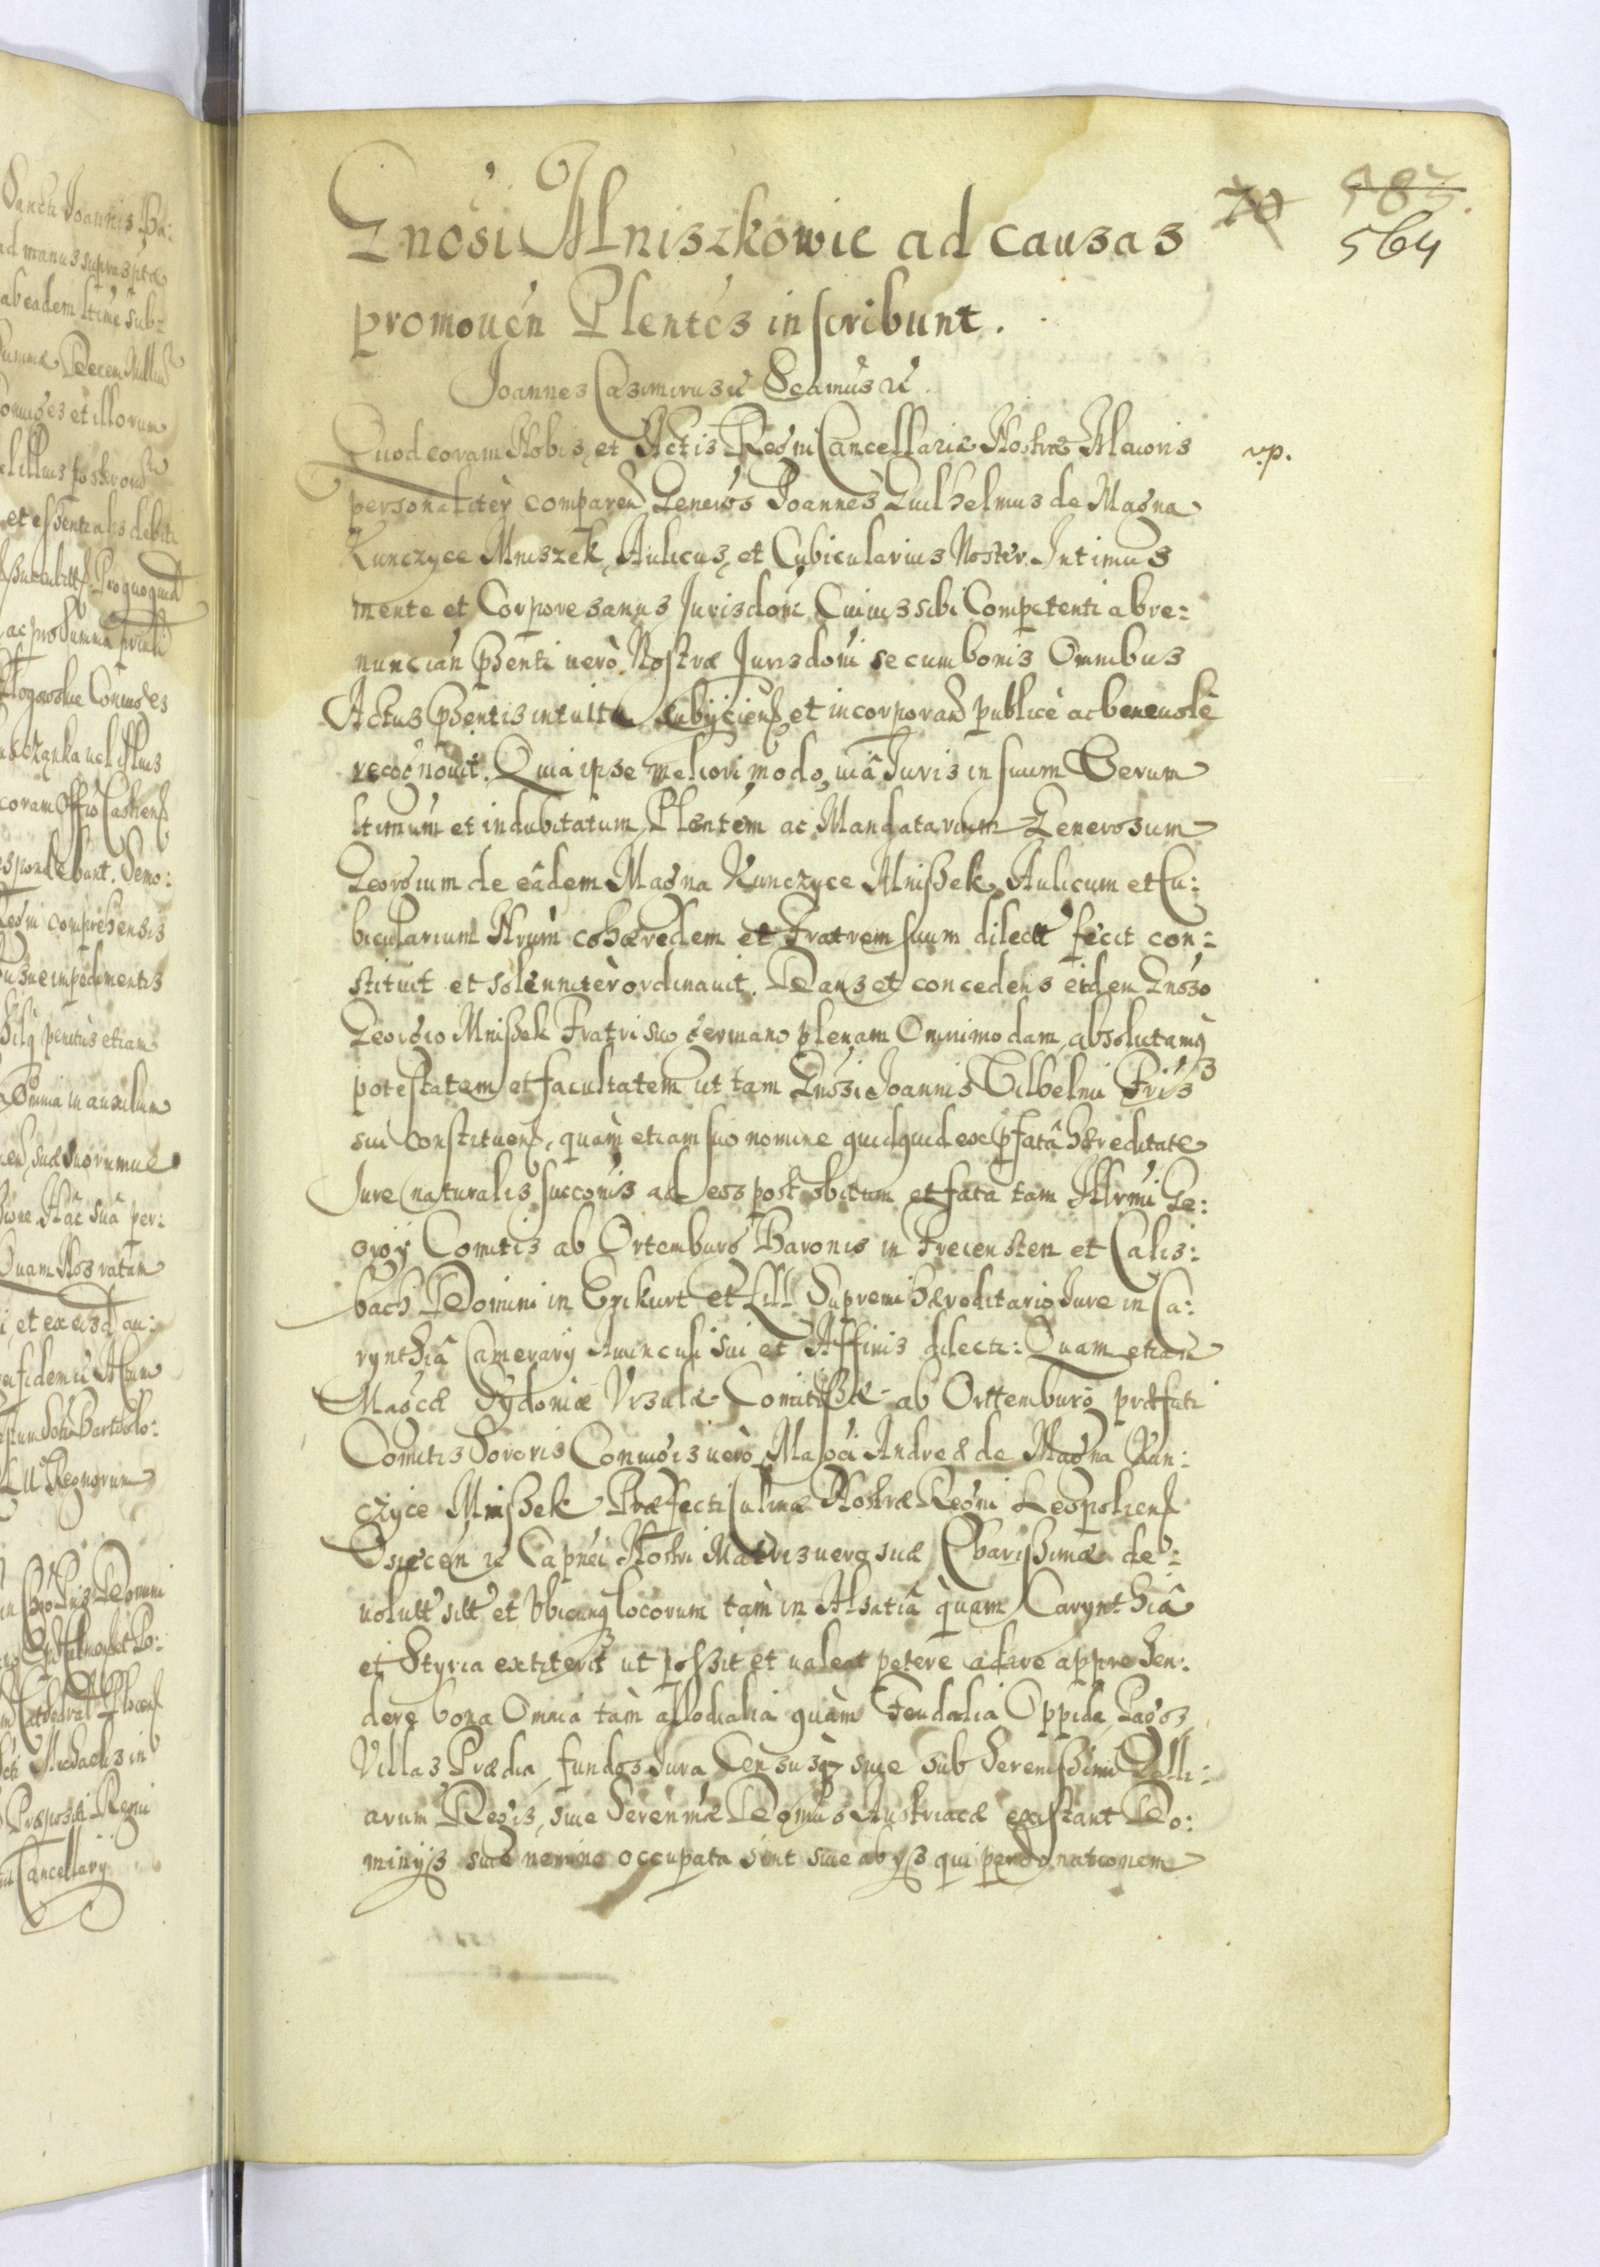 Gnosi Mniszkowie ad causas
promouen̄ Plentes inscribunt.
70 583
564
Joannes Casimirus etc̄ Seamus etc̄.
Quod coram Nobis, et Actis Regni Cancellariæ Nostræ Maioris
v.p.
personalitèr comparen̄ Generos Joannes Guilhelmus de Magna
Kunczyce Mniszek, Aulicus, et Cubicularius Noster Intimus
mente et Corpore sanus Jurisdoni Cuius sibi Competenti abre:
nuncian̄ p̄senti uerò Nostræ Jurisdoni se cum bonis Omnibus
Actus p̄sentis intuitu subijciens et incorporan̄ publicè ac beneuolè
recognouit. Quia ipse meliori modo, uiâ Juris in suum Verum
ltimum et indubitatum Plentem ac Mandatarium Generosum
Georgium de eâdem Magna Kunczyce Mnisßek Aulicum et Cu:
bicularium Nrūm cohæredem et Fratrem suum dilectt fecit con:
stituit et solenniter ordinauit. Dans et concedens eidem Gnoso
Georgio Mnißek Fratri suo germano plenam Omnimodam, absolutamq̨
potestatem et facultatem ut tam Gnosi Joannis Vilhelmi Fris
sui constituen̄, quàm etiam suo nomine quidquid ex p̄fatâ hæreditate
Jure naturalis succonis ad eos post obitum et fata tam Illrmi Ge:
orgij Comitis ab Ortemburg Baronis in Freienstein et Calis:
bach Domini in Erkurt et Lill Supremi hæreditario Jure in Ca:
rynthiâ Camerarij Auunculi sui et Affinis dilecti: Quam etiam
Magcæ Sydoniæ Vrsulæ Comitißæ ab Orttemburg præfati
Comitis Sororis Coniugis uerò Magci Andreæ de Magna Kun:
czyce Mnißek Præfecti Culinæ Nostræ Regni Leopolien̄
Osiecen̄ etc̄ Capnei Nostri Matris uero suæ Charißimæ de:
uolutt sitt et Vbicunq̨ locorum tàm in Alsatiâ quàm Carynthiâ
et Styria extiterit ut poßit et ualeat petere adire appraehen:
dere bona Omnia tàm allodialia quàm Feudalia Oppida, Pagos,
Villas Prædia, fundos Jura Censusq̨ siue sub Serenißimi Galli:
arum Regis, siue Serenmæ Domus Austriacæ existant Do:
minijs siue nemine occupata sint siue ab ys qui per donationem